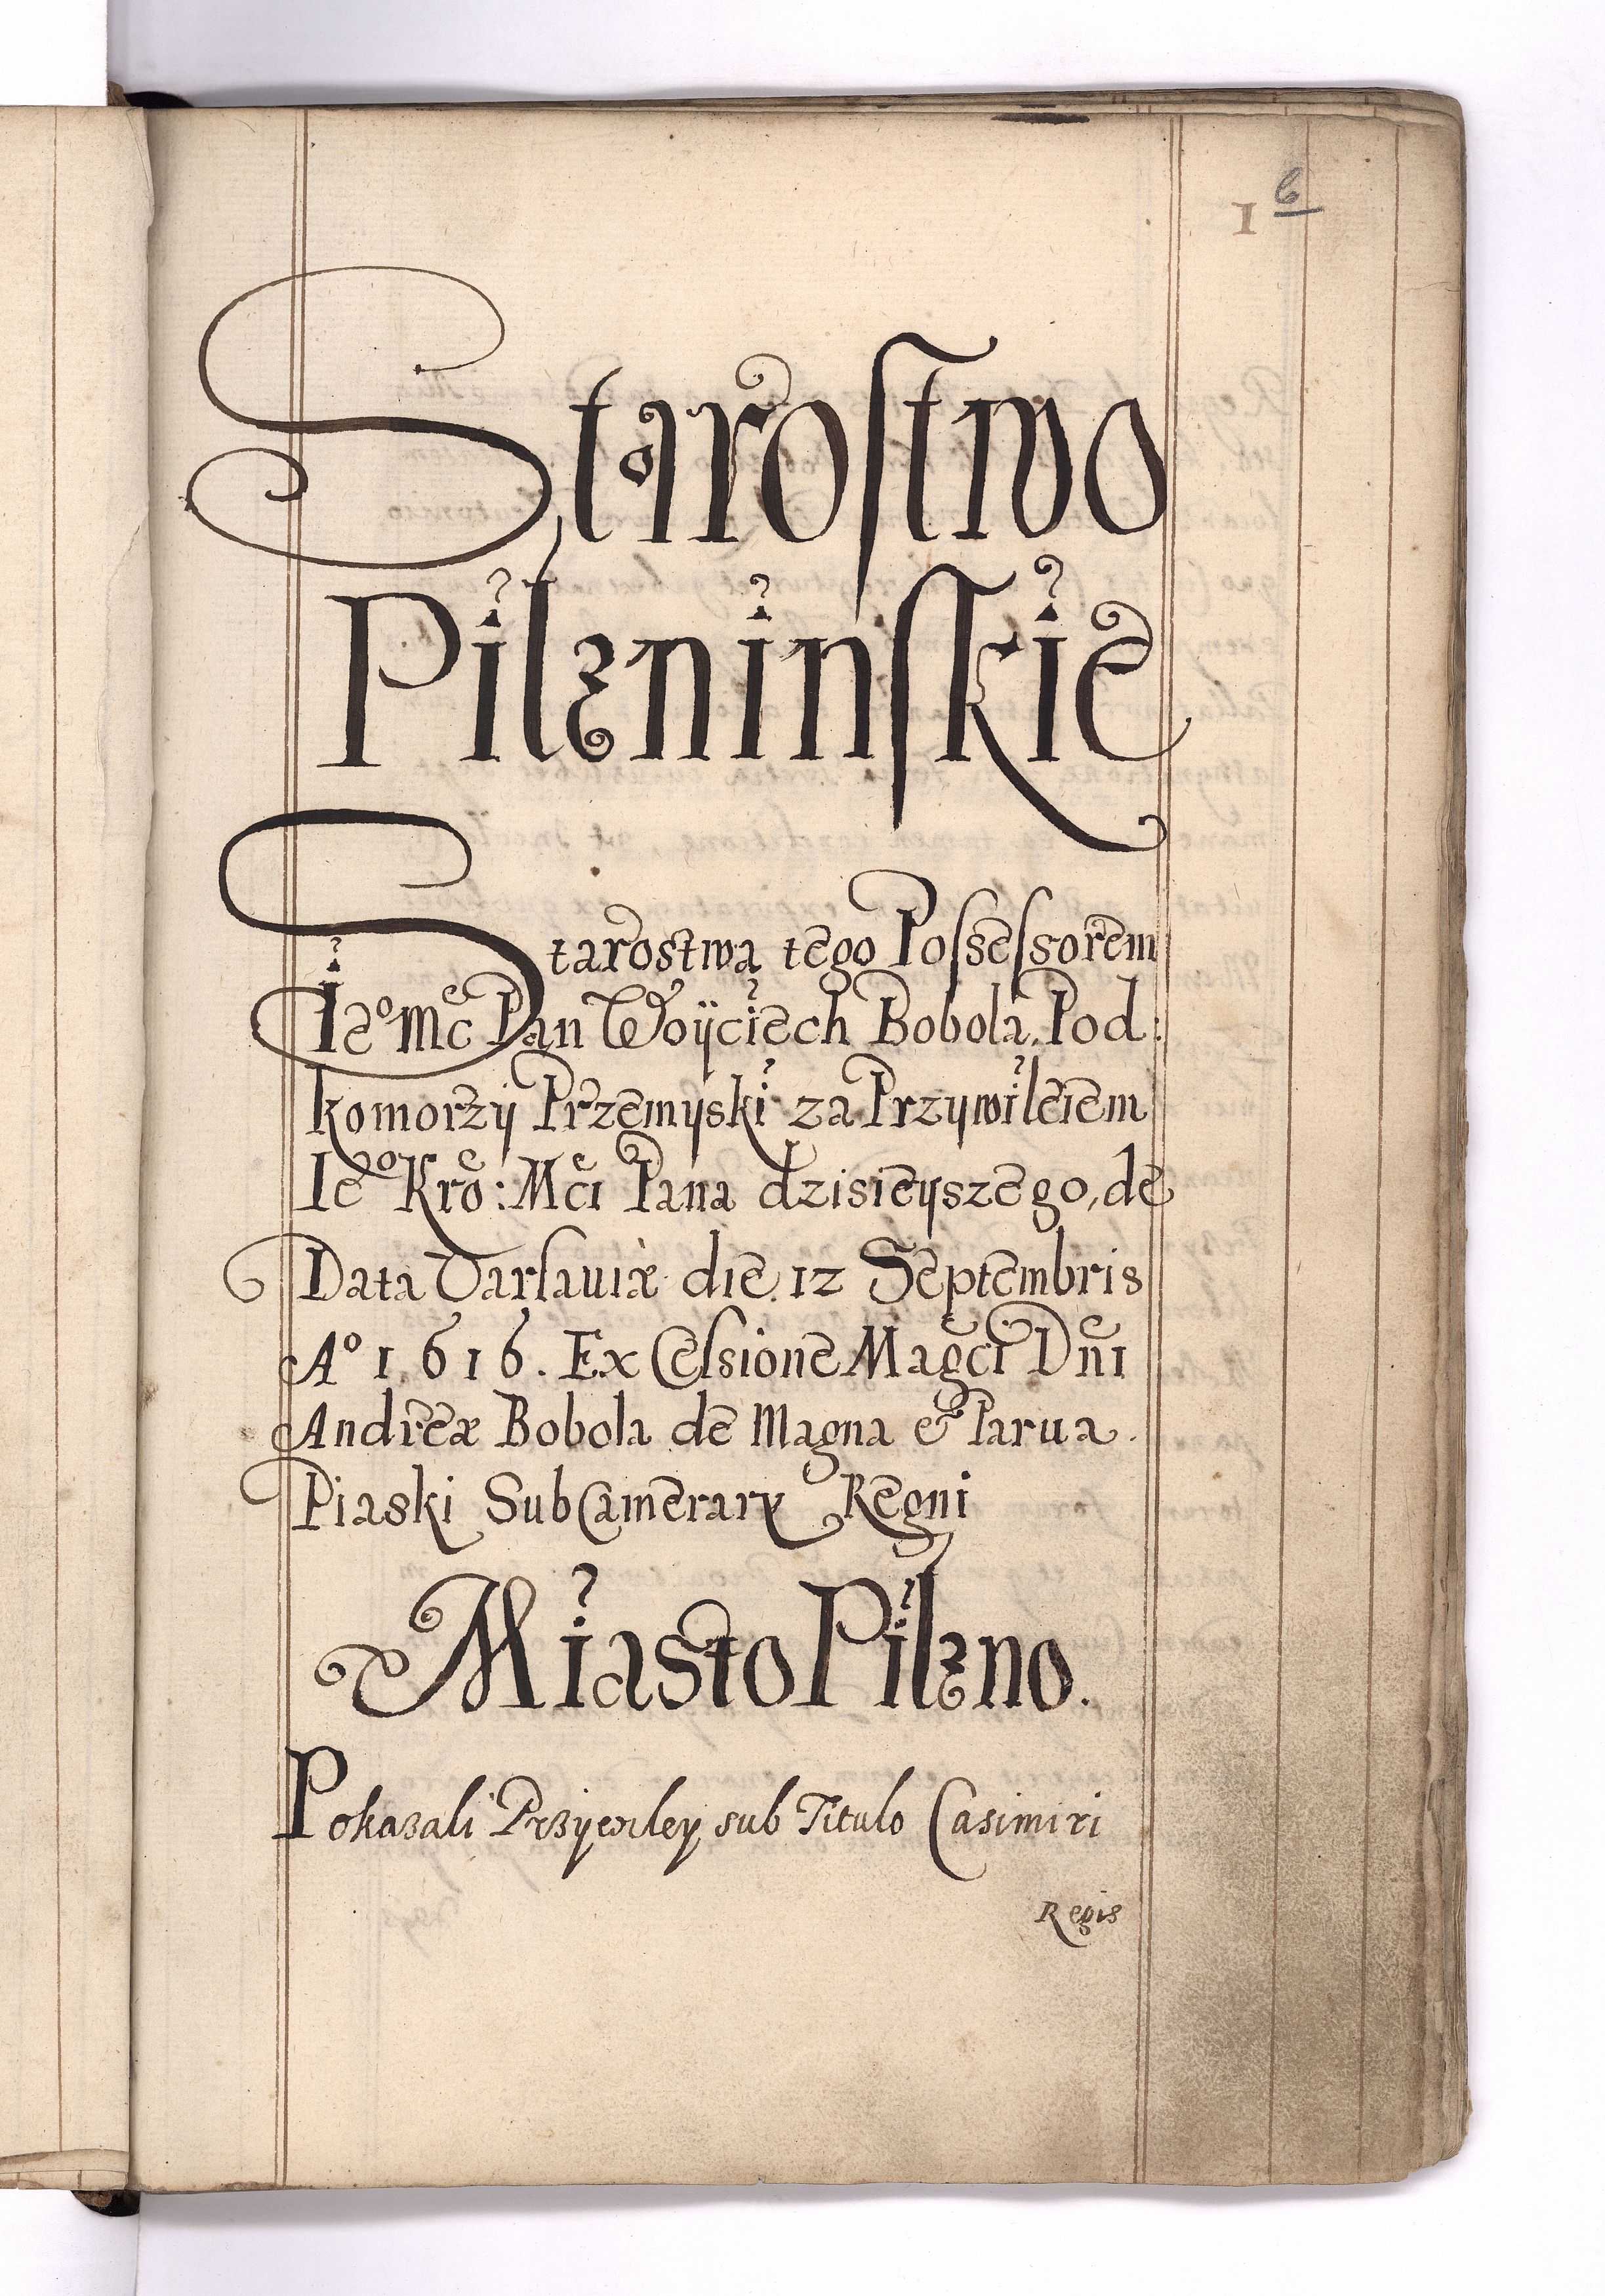 1 6
Starostwo
Pilzninskie
Starostwa tego Possessorem
Ie° Mc Pan Woyciech Bobola Pod:
komorzy Przemyski za Przywileiem
Ie° Kro: Mci Pana dzisieyszego, de
Data Varsauiæ die 12 Septembris
A° 1616. Ex Celsione Magci Dni
Andreæ Bobola de Magna & Parua.
Piaski SubCamerary Regni
Miasto Pilzno.
Pokazali Przywiley sub Titulo Casimiri
Regis